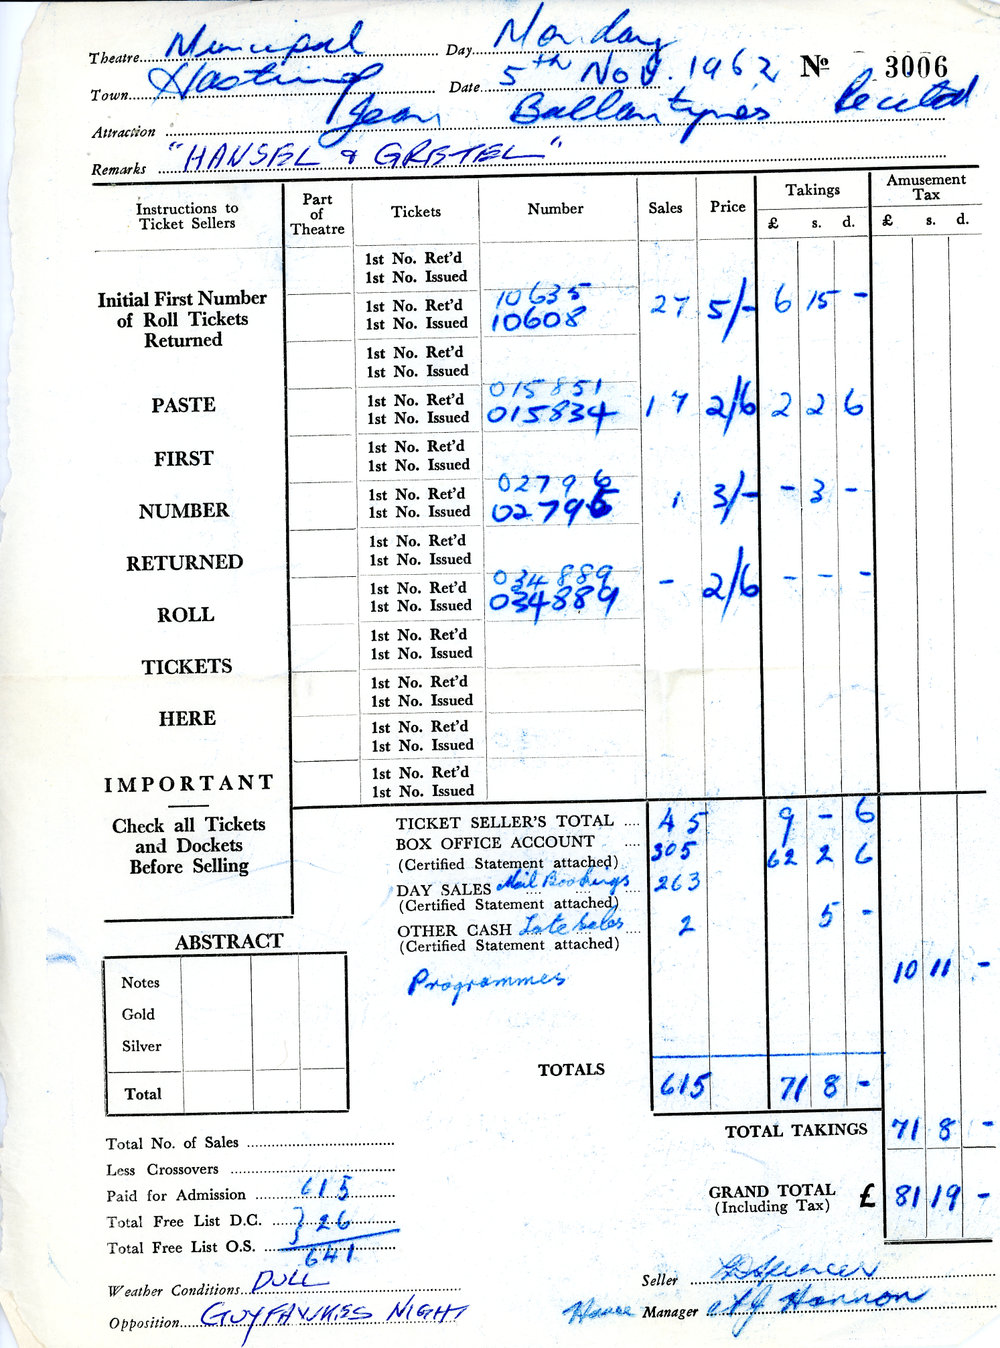 Theatre Municipal Day Monday
Town Hastings Date 5th Nov. 1962 No 3006
Attraction Jean Ballantynes Recital
Remarks "HANSEL & GRETEL"
Instructions to Ticket Sellers Part of Theatre Tickets Number Sales Price Takings £ s. d. Amusement Tax £ s. d.
1st No. Ret'd
1st No. Issued
Initial First Number of Roll Tickets Returned
1st No. Ret'd 10635
1st No. Issued 10608 27 5/- 6 15 -
1st No. Ret'd
1st No. Issued
PASTE
1st No. Ret'd 015851
1st No. Issued 015834 17 2/6 2 2 6
FIRST
1st No. Ret'd
1st No. Issued
NUMBER
1st No. Ret'd 02796
1st No. Issued 02795 1 3/- - 3 -
RETURNED
1st No. Ret'd
1st No. Issued
ROLL
1st No. Ret'd 034889
1st No. Issued 034889 - 2/6 - - -
TICKETS
1st No. Ret'd
1st No. Issued
HERE
1st No. Ret'd
1st No. Issued
1st No. Ret'd
1st No. Issued
IMPORTANT
1st No. Ret'd
1st No. Issued
Check all Tickets
and Dockets
Before Selling
TICKET SELLER'S TOTAL .... 45 9 - 6
BOX OFFICE ACCOUNT .... 305 62 2 6
(Certified Statement attached)
DAY SALES Mail Bookings 263
(Certified Statement attached)
OTHER CASH Late Sales 2 5 -
(Certified Statement attached)
Programmes 10 11 -
ABSTRACT
Notes
Gold
Silver
Total
TOTALS 615 71 8 -
TOTAL TAKINGS 71 8 -
GRAND TOTAL £ 81 19 -
(Including Tax)
Total No. of Sales
Less Crossovers
Paid for Admission 615
Total Free List D.C. } 26
Total Free List O.S. 641
Weather Conditions DULL
Opposition GUY FAWKES NIGHT
Seller Spencer
House Manager Hannon